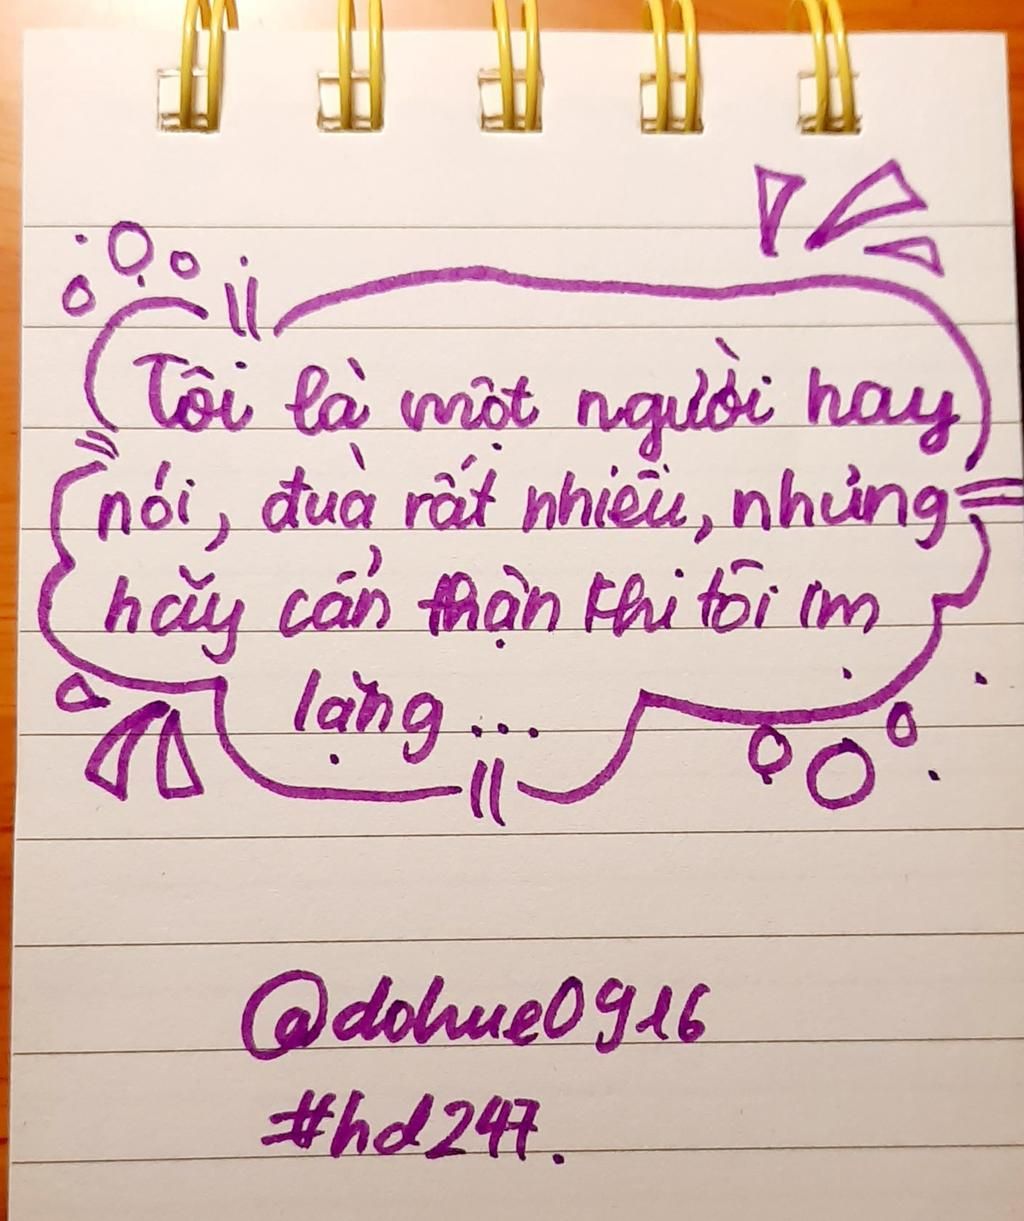 Tôi là một người hay
nói, đuà rất nhiều, nhưng
hãy cẩn thận khi tôi im
lặng...
@dohue0916
#hd247.